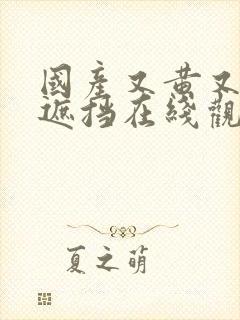 國產又黄又
遮挡在綫觀
夏之萌